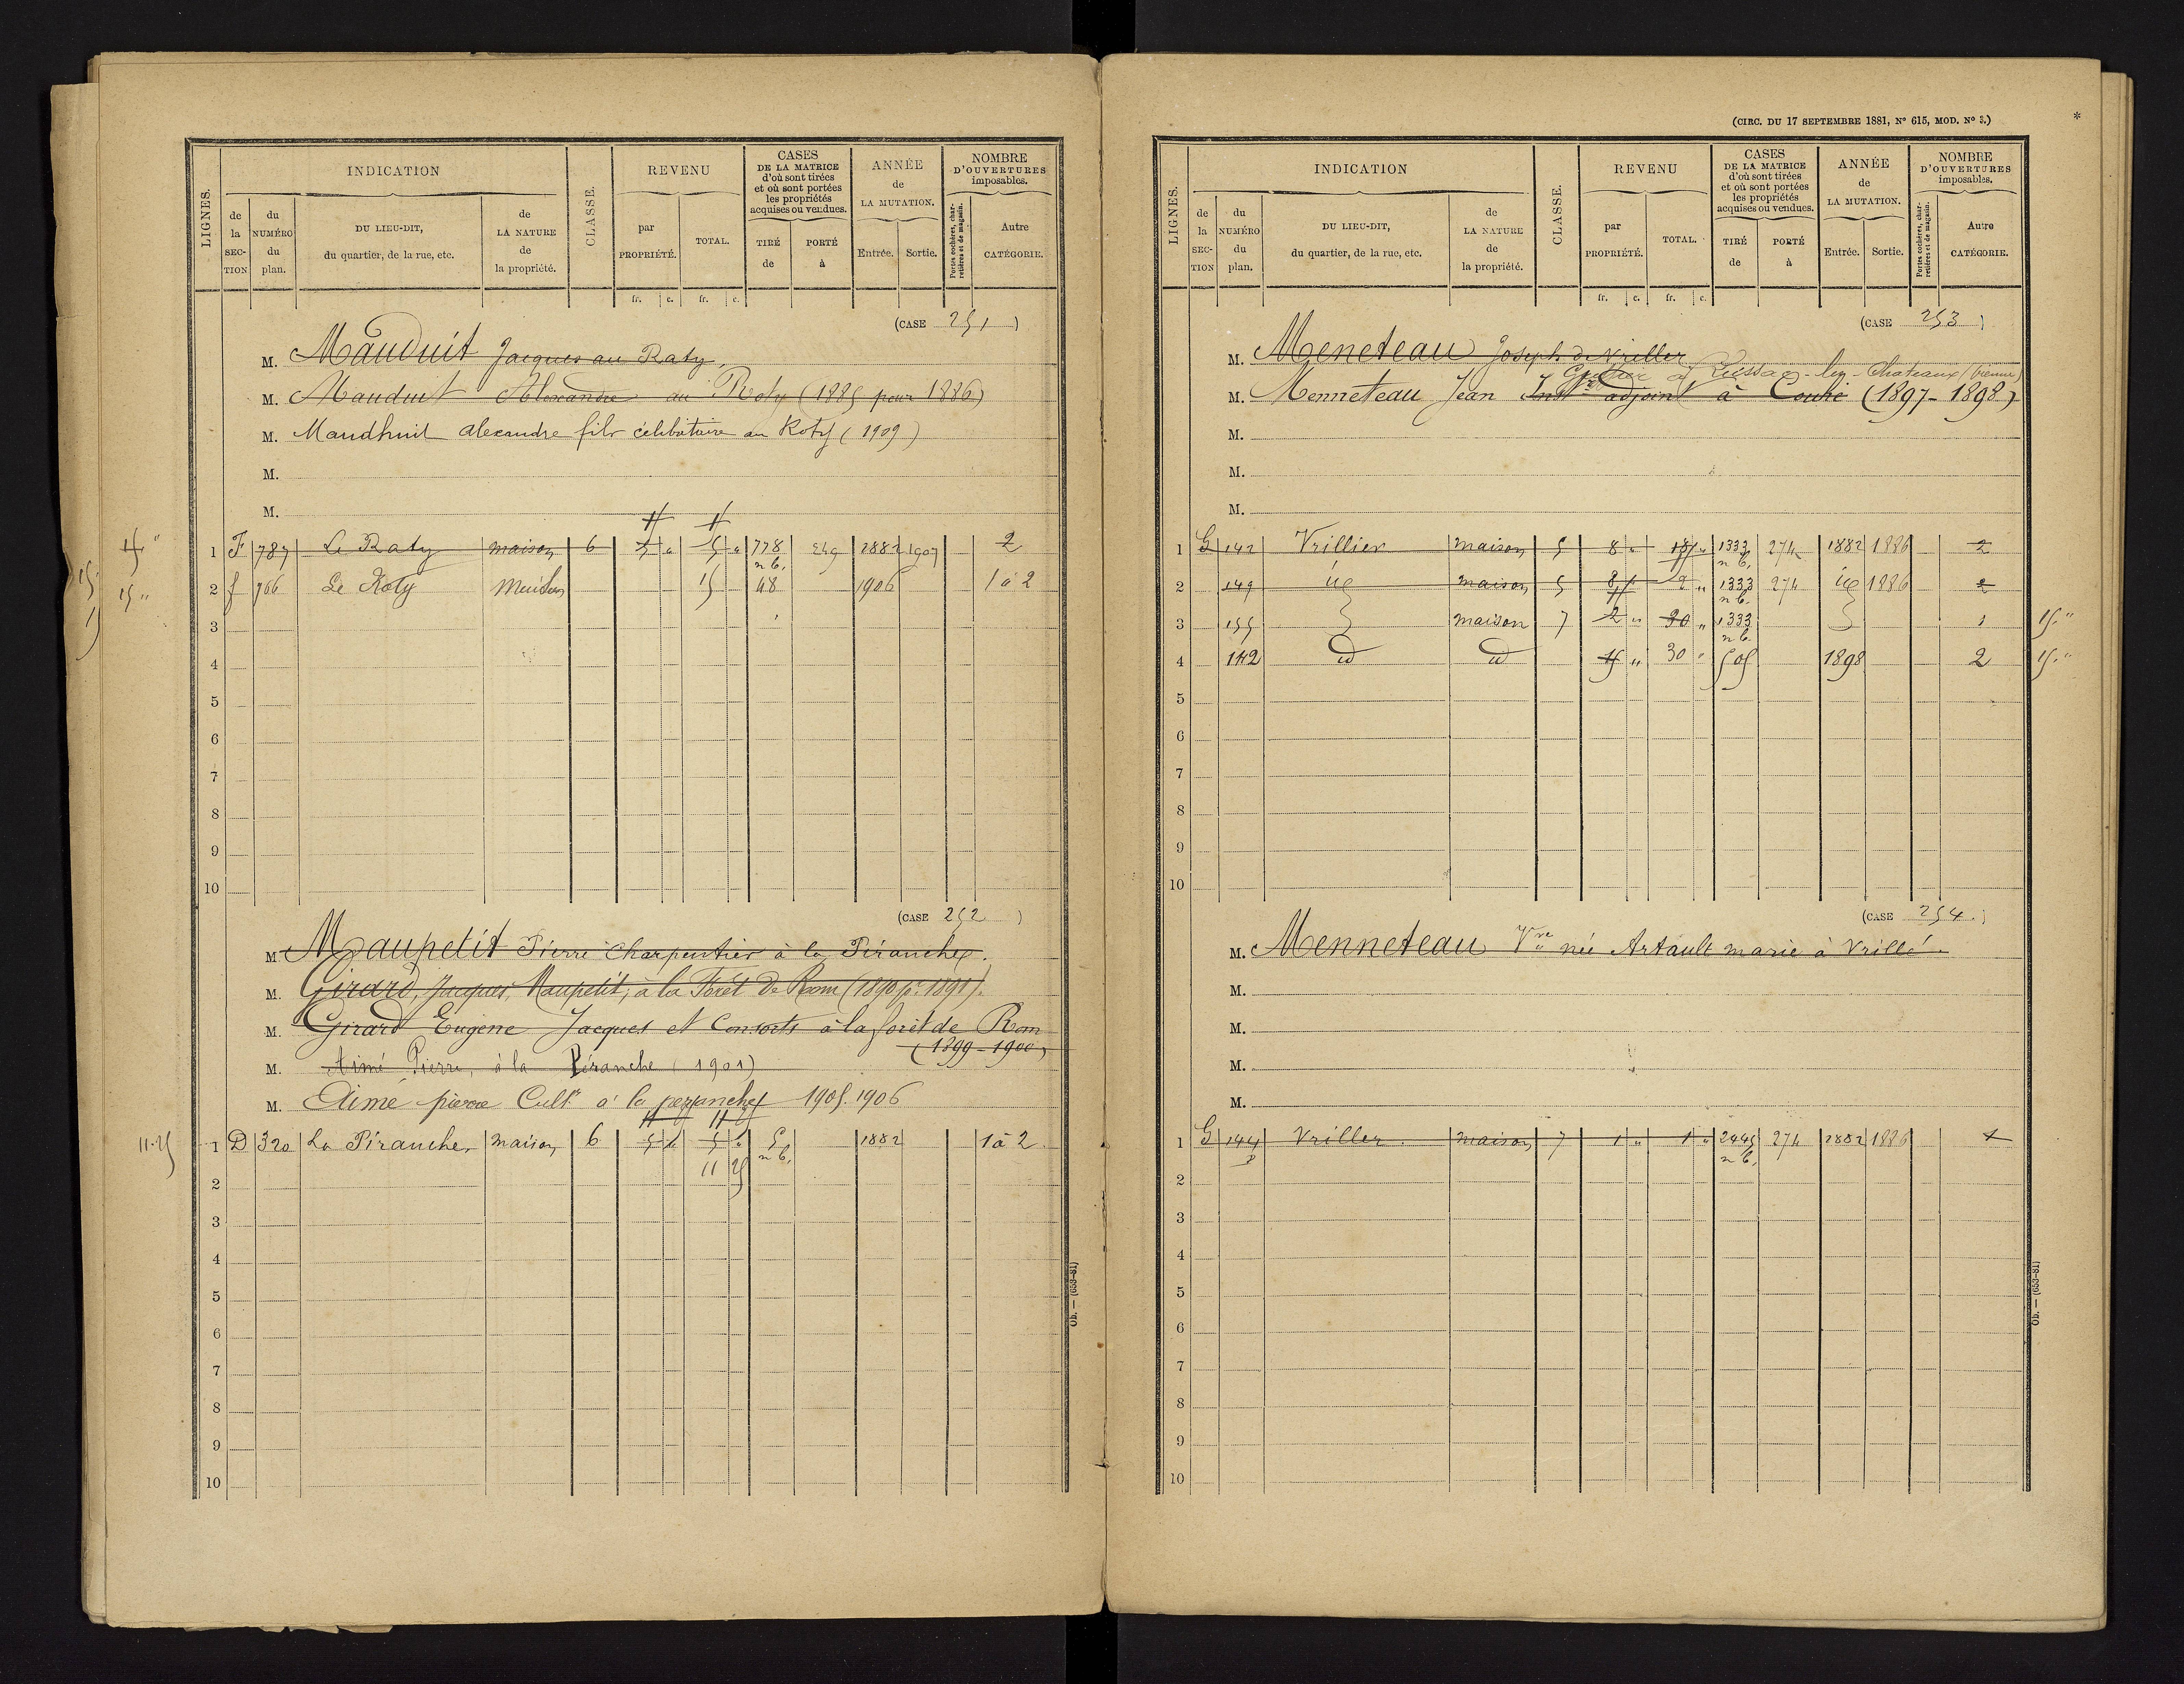 LIGNES.
INDICATION
de la SECTION
du NUMÉRO du plan.
DU LIEU-DIT, du quartier, de la rue, etc.
de LA NATURE de la propriété.
CLASSE.
REVENU
par PROPRIÉTÉ.
TOTAL.
CASES DE LA MATRICE d'où sont tirées et où sont portées les propriétés acquises ou vendues.
TIRÉ de
PORTÉ à
ANNÉE de LA MUTATION.
Entrée.
Sortie.
NOMBRE D'OUVERTURES imposables.
Portes cochères, charretières et de magasin.
Autre CATÉGORIE.
fr. c. fr. c.
(CASE 251)
M. Mauduit Jacques au Raty
M. Mauduit Alexandre au Roty (1885 pour 1886)
M. Maudhuit alexandre fils célibataire au Roty (1909)
M.
M.
1 F 787 Le Raty maison 6 5 " 5 " 778 n b. 249 1882 1907 2
15 "
2 f 766 Le Roty Maison 15 48 1906 1 à 2
3
4
5
6
7
8
9
10
(CASE 252)
M. Maupetit Pierre Charpentier à la Piranche.
M. Girard, Jacques, Maupetit, à la Forêt de Rom (1890 pr 1891).
M. Girard Eugene Jacques et Consorts à la forêt de Rom
(1899-1900)
M. Aimé Pierre, à la Péranche (1901)
M. Aimé pierre Cultr à la peranche 1905.1906
11.25
1 D 320 La Piranche maison 6 5 " 5 " 5 n b. 1882 1 à 2
11 25
2
3
4
5
6
7
8
9
10
Ob. — (653-81)
(CIRC. DU 17 SEPTEMBRE 1881, Nº 615, MOD. Nº 3.)
*
LIGNES.
INDICATION
de la SECTION
du NUMÉRO du plan.
DU LIEU-DIT, du quartier, de la rue, etc.
de LA NATURE de la propriété.
CLASSE.
REVENU
par PROPRIÉTÉ.
TOTAL.
CASES DE LA MATRICE d'où sont tirées et où sont portées les propriétés acquises ou vendues.
TIRÉ de
PORTÉ à
ANNÉE de LA MUTATION.
Entrée.
Sortie.
NOMBRE D'OUVERTURES imposables.
Portes cochères, charretières et de magasin.
Autre CATÉGORIE.
fr. c. fr. c.
(CASE 253)
M. Meneteau Joseph de Vriller
à Queaux-les-Chateaux (Vienne)
M. Menneteau Jean Instr adjoint à Couhé (1897-1898)
M.
M.
M.
1 G 142 Vrillier maison 5 8 " 18 " 1333 n b. 274 1882 1886 2
2 149 id maison 5 8 1333 n b. 274 id 1886 2
3 155 maison 7 2 " 20 " 1333 n b. 1 15 "
4 142 id id 15 " 30 " 505 1898 2 15 "
5
6
7
8
9
10
(CASE 254.)
M. Menneteau Vve née Artault marie à Vrillé.
M.
M.
M.
M.
1 G 144 p Vriller. maison 7 1 " 1 " 2445 n b. 274 1882 1886 1
2
3
4
5
6
7
8
9
10
Ob. — (653-81)